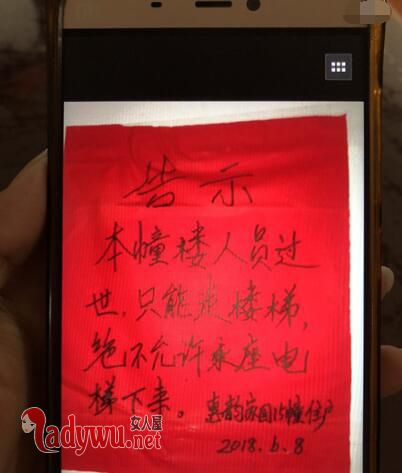 告示
本幢楼人员过
世,只能走楼梯,
绝不允许乘座电
梯下来。惠韵家园15幢住户
2018.6.8
女人屋
ladywu.net